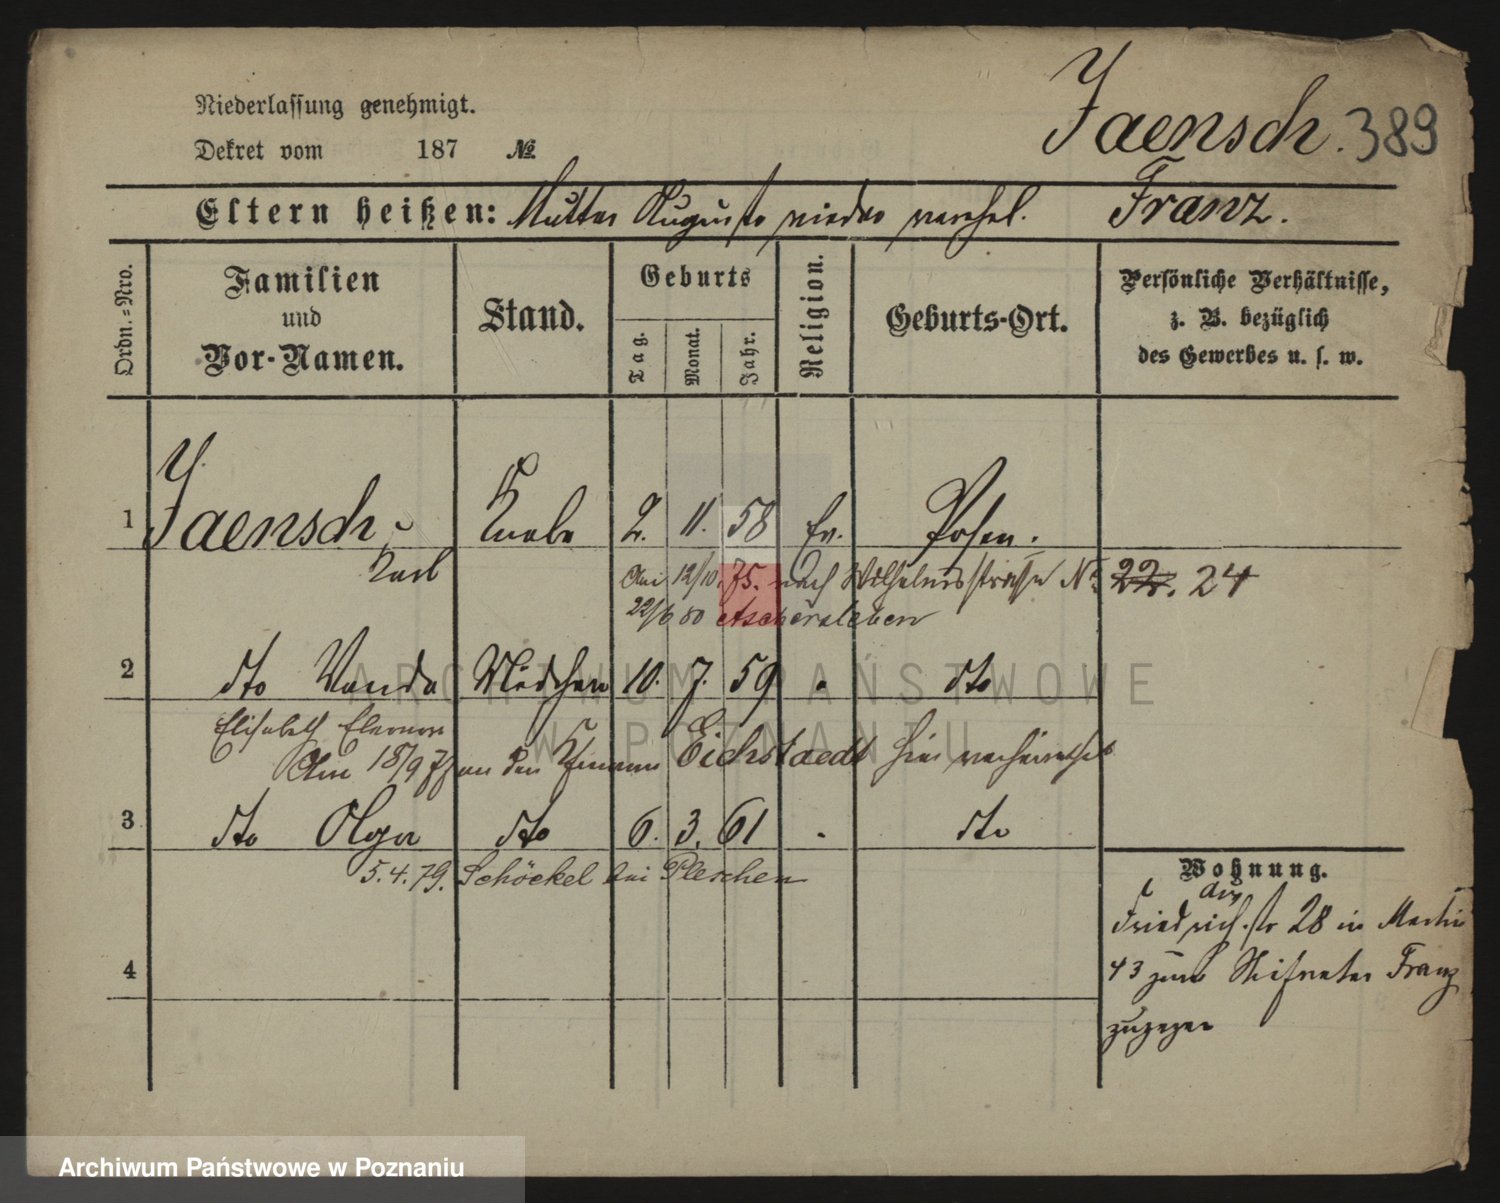 Niederlassung genehmigt.
Dekret vom 187 №
Jaensch. 389
Eltern heißen: Mutter Auguste wieder verehel. Franz.
Ordn.-Nro.
Familien
und
Vor-Namen.
Stand.
Geburts
Tag.
Monat.
Jahr.
Religion.
Geburts-Ort.
Persönliche Verhältnisse,
z. B. bezüglich
des Gewerbes u. s. w.
1 Jaensch, Knabe 2. 11. 58 Ev. Posen.
Karl
12/10. 75. nach Wilhelmsstraße No 22. 24
22/6 80 Aschersleben
2 dto Wanda Mädchen 10. 7. 59 " dto
Elisabeth Eleonore
Am 18/9 77 an den Kfmann Eichstaedt hier verheirathet
3 dto Olga dto 6. 3. 61 " dto
5. 4. 79. Schöckel bei Pleschen
4
Wohnung.
aus
Friedrich-str 28 in Martin
43 zum Stiefvater Franz
zugezogen
ARCHIWUM PAŃSTWOWE
W POZNANIU
Archiwum Państwowe w Poznaniu